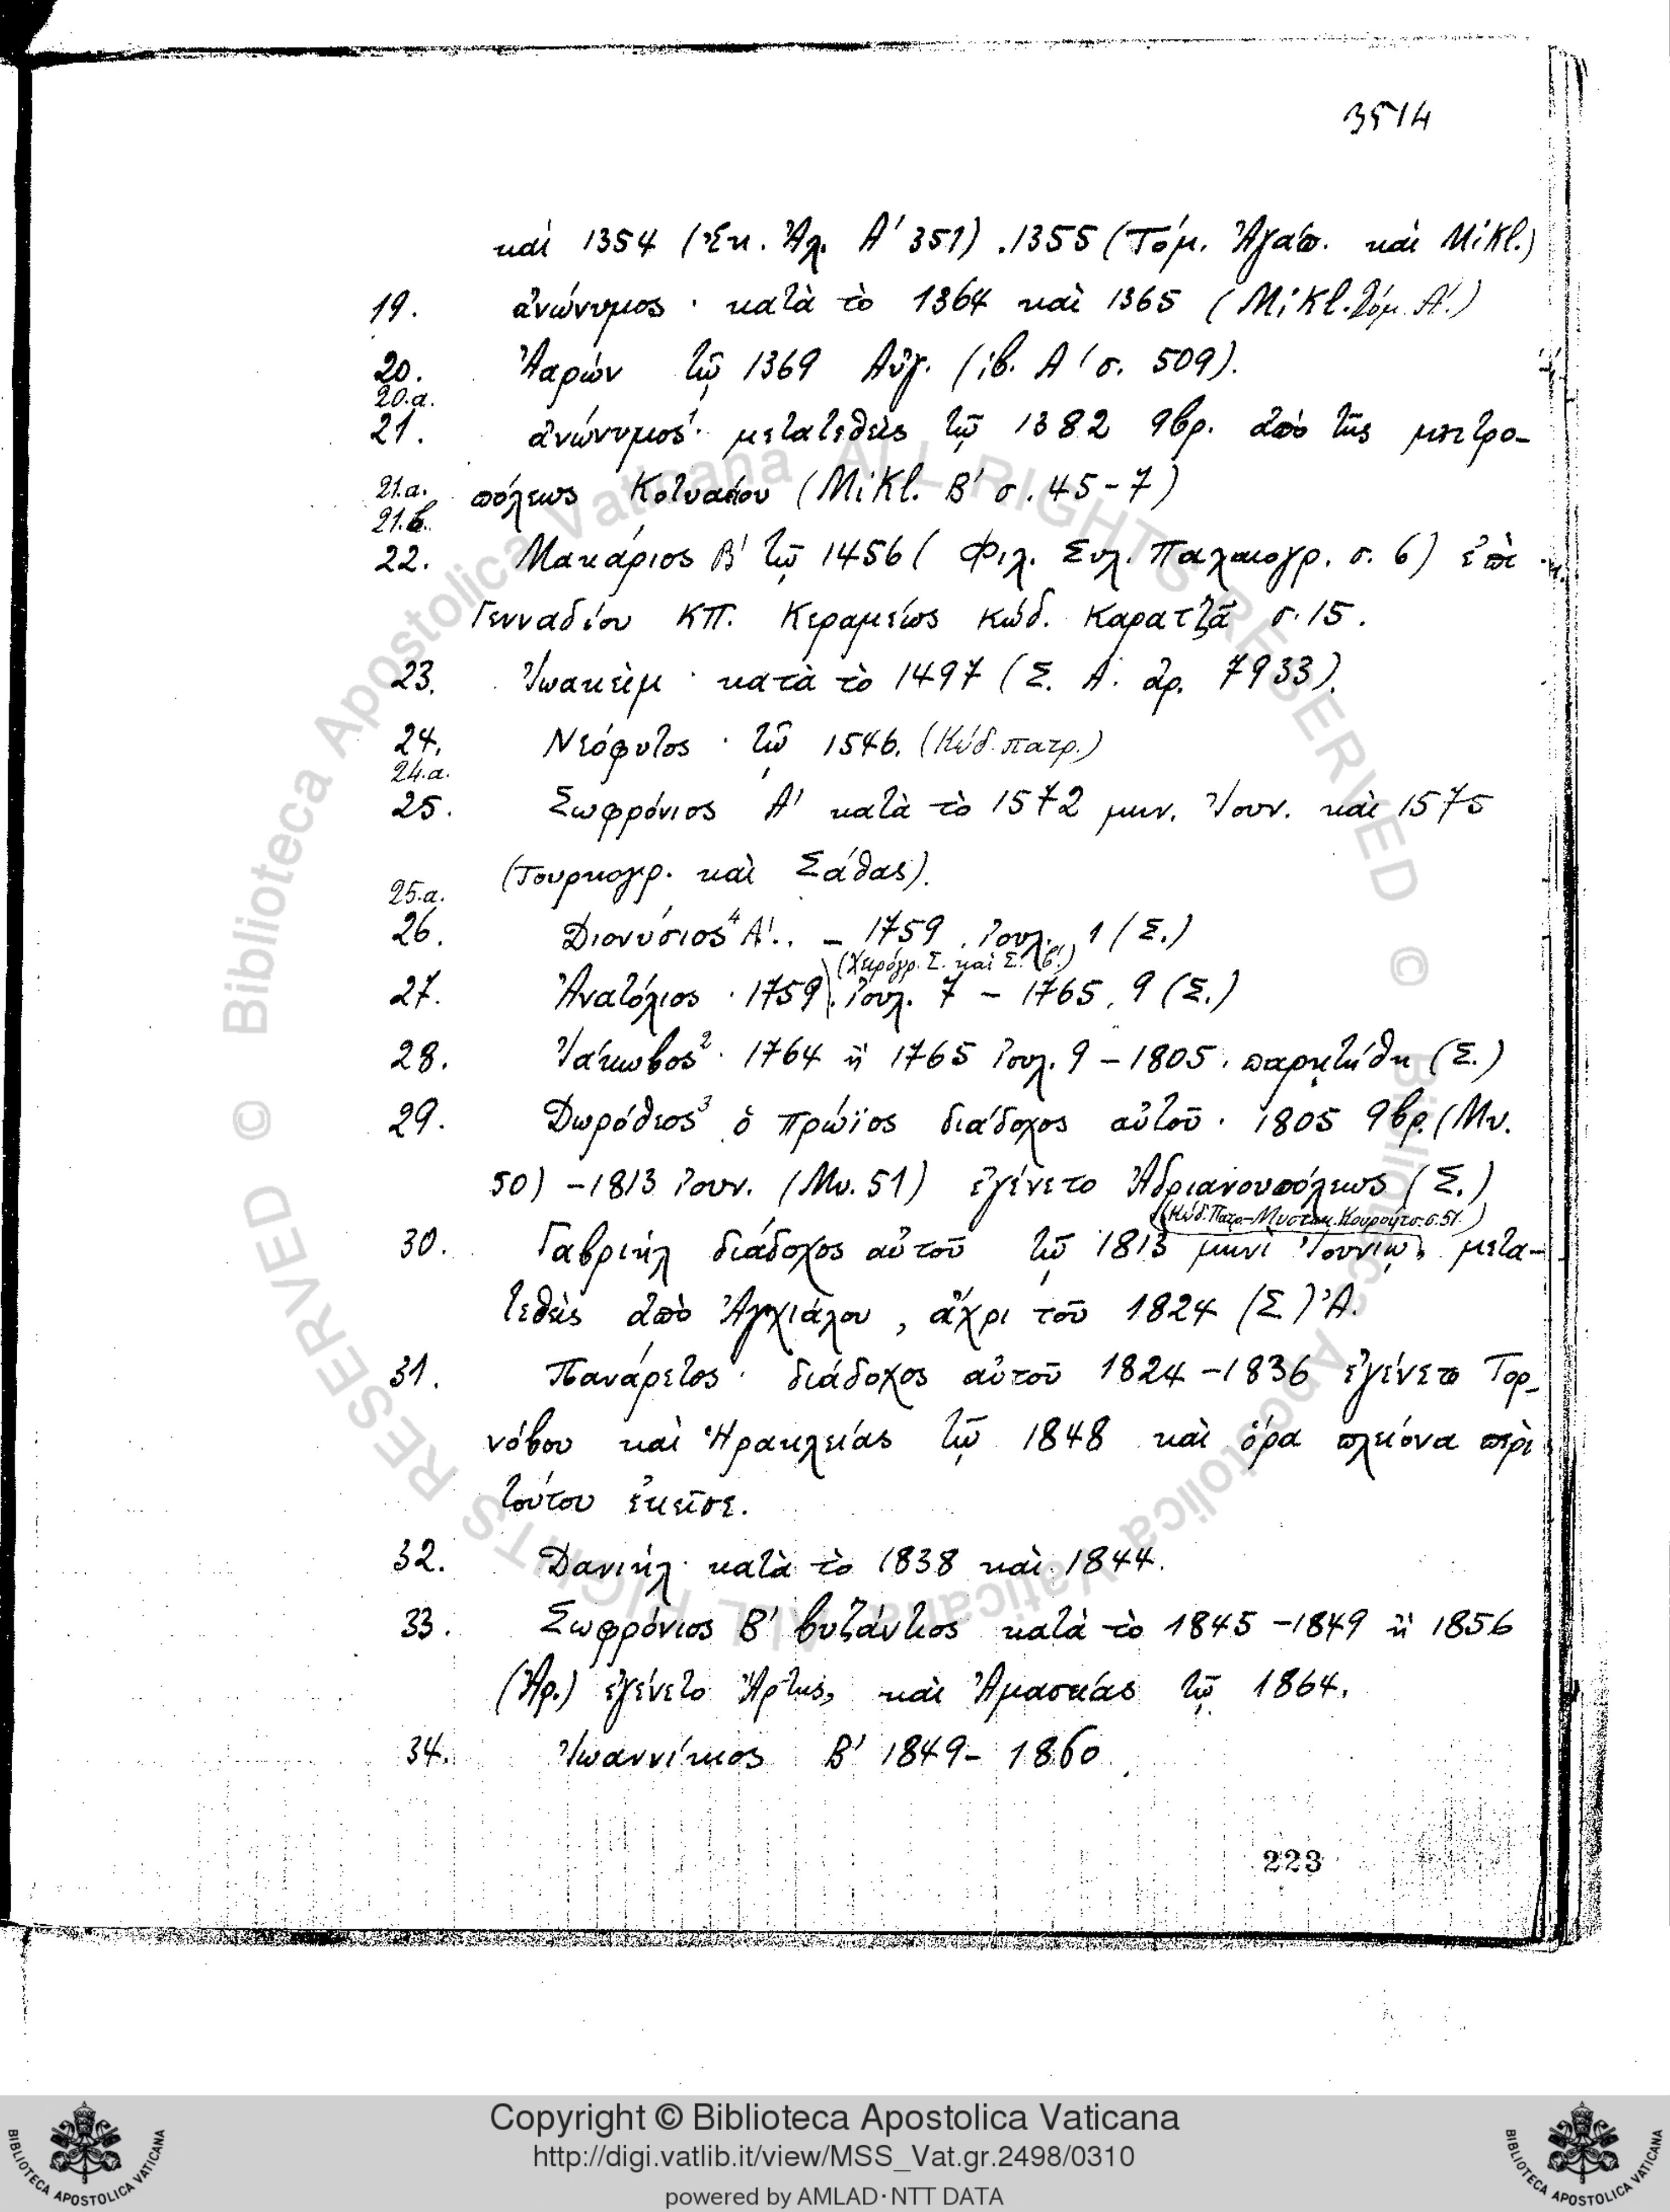 3514
καὶ 1354 (Ἐκ. Ἀλ. Α' 351) .1355 (Τόμ. Ἀγάπ. καὶ Mikl.)
19. ἀνώνυμος · κατὰ τὸ 1364 καὶ 1365 (Mikl. Τόμ. Α'.)
20. Ἀαρών τῷ 1369 Αὔγ. (ib. Α' σ. 509).
20.α.
21. ἀνώνυμος¹· μετατεθεὶς τῷ 1382 9βρ. ἀπὸ τῆς μητρο-
21.α. πόλεως Κοτυαείου (Mikl. Β' σ. 45-7)
21.β.
22. Μακάριος Β' τῷ 1456 ( Φιλ. Συλ. Παλαιογρ. σ. 6) ἐπὶ
Γενναδίου ΚΠ. Κεραμέως κώδ. Καρατζᾶ σ. 15.
23. Ἰωακεὶμ · κατὰ τὸ 1497 (Σ. Α. ἀρ. 7933).
24. Νεόφυτος · τῷ 1546. (Κώδ. πατρ.)
24.α.
25. Σωφρόνιος Α' κατὰ τὸ 1572 μην. Ἰουν. καὶ 1575
(Τουρκογρ. καὶ Σάθας).
25.α.
26. Διονύσιος⁴ Α'.. – 1759 . Ἰουλ. 1 (Σ.)
(Χειρόγρ. Σ. καὶ Σ. β'.)
27. Ἀνατόλιος · 1759. Ἰουλ. 7 – 1765. 9 (Σ.)
28. Ἰάκωβος² · 1764 ἢ 1765 Ἰουλ. 9 – 1805. παρῃτήθη (Σ.)
29. Δωρόθεος³ ὁ πρώϊος διάδοχος αὐτοῦ · 1805 9βρ. (Μν.
50) – 1813 Ἰουν. (Μν. 51) ἐγένετο Ἀδριανουπόλεως (Σ.)
(Κώδ. Πατρ.–Μυστακ. Κουρούτσ. σ. 51.)
30. Γαβριὴλ διάδοχος αὐτοῦ τῷ 1813 μηνὶ Ἰουνίῳ, μετα-
τεθεὶς ἀπὸ Ἀγχιάλου, ἄχρι τοῦ 1824 (Σ) Ἀ.
31. Πανάρετος · διάδοχος αὐτοῦ 1824 – 1836 ἐγένετο Τορ-
νόβου καὶ Ἡρακλείας τῷ 1848 καὶ ὅρα πλείονα περὶ
τούτου ἐκεῖσε.
32. Δανιὴλ · κατὰ τὸ 1838 καὶ 1844.
33. Σωφρόνιος Β' βυζάντιος κατὰ τὸ 1845 – 1849 ἢ 1856
(Ἀρ.) ἐγένετο Ἄρτης, καὶ Ἀμασείας τῷ 1864.
34. Ἰωαννίκιος Β' 1849 – 1860.
223
© Biblioteca Apostolica Vaticana ALL RIGHTS RESERVED © Biblioteca Apostolica Vaticana ALL RIGHTS RESERVED
Copyright © Biblioteca Apostolica Vaticana
http://digi.vatlib.it/view/MSS_Vat.gr.2498/0310
powered by AMLAD·NTT DATA
BIBLIOTECA APOSTOLICA VATICANA
BIBLIOTECA APOSTOLICA VATICANA